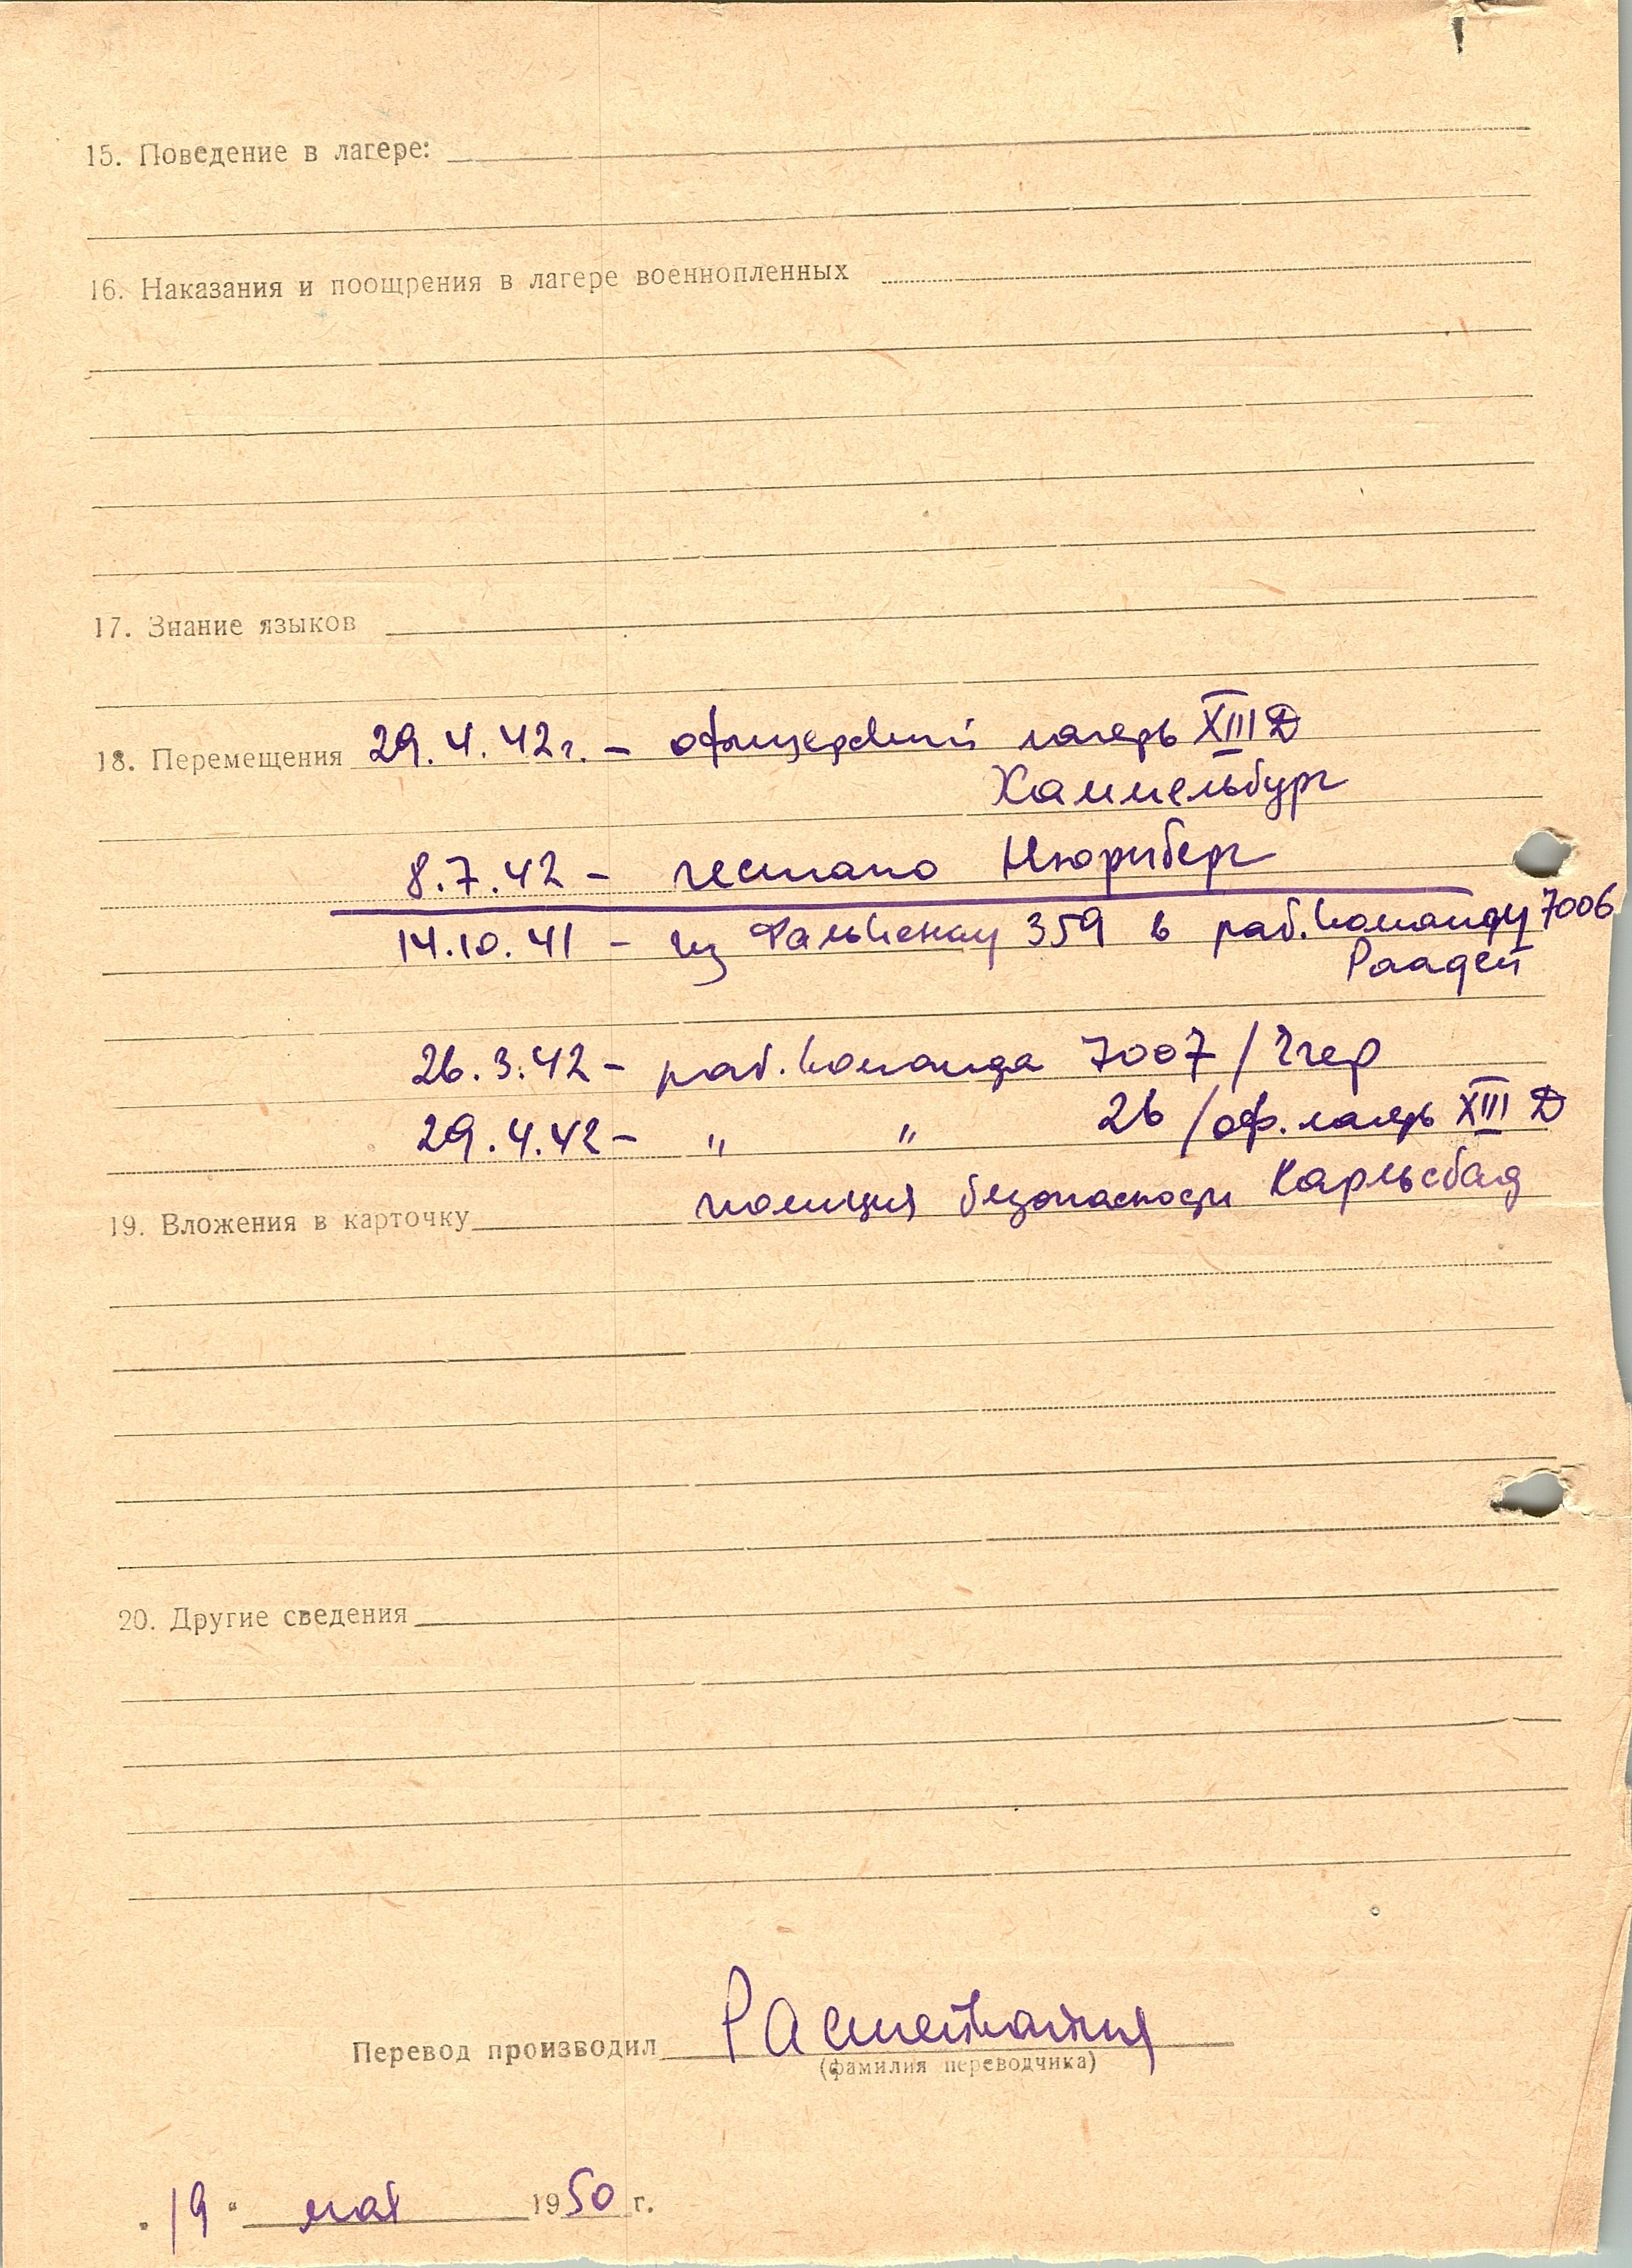 15. Поведение в лагере:
16. Наказания и поощрения в лагере военнопленных
17. Знание языков
18. Перемещения 29.4.42г. – офицерский лагерь XIII Д
Хаммельбург
8.7.42 – гестапо Нюрнберг
14.10.41 – из Фалькенау 359 в раб.команду 7006
26.3.42 – раб.команда 7007 / Эгер
29.4.42 – " " 26 /оф.лагерь XIII Д
полиция безопасности Карльсбад
19. Вложения в карточку
20. Другие сведения
Перевод производил
(фамилия переводчика)
"19" мая 1950 г.